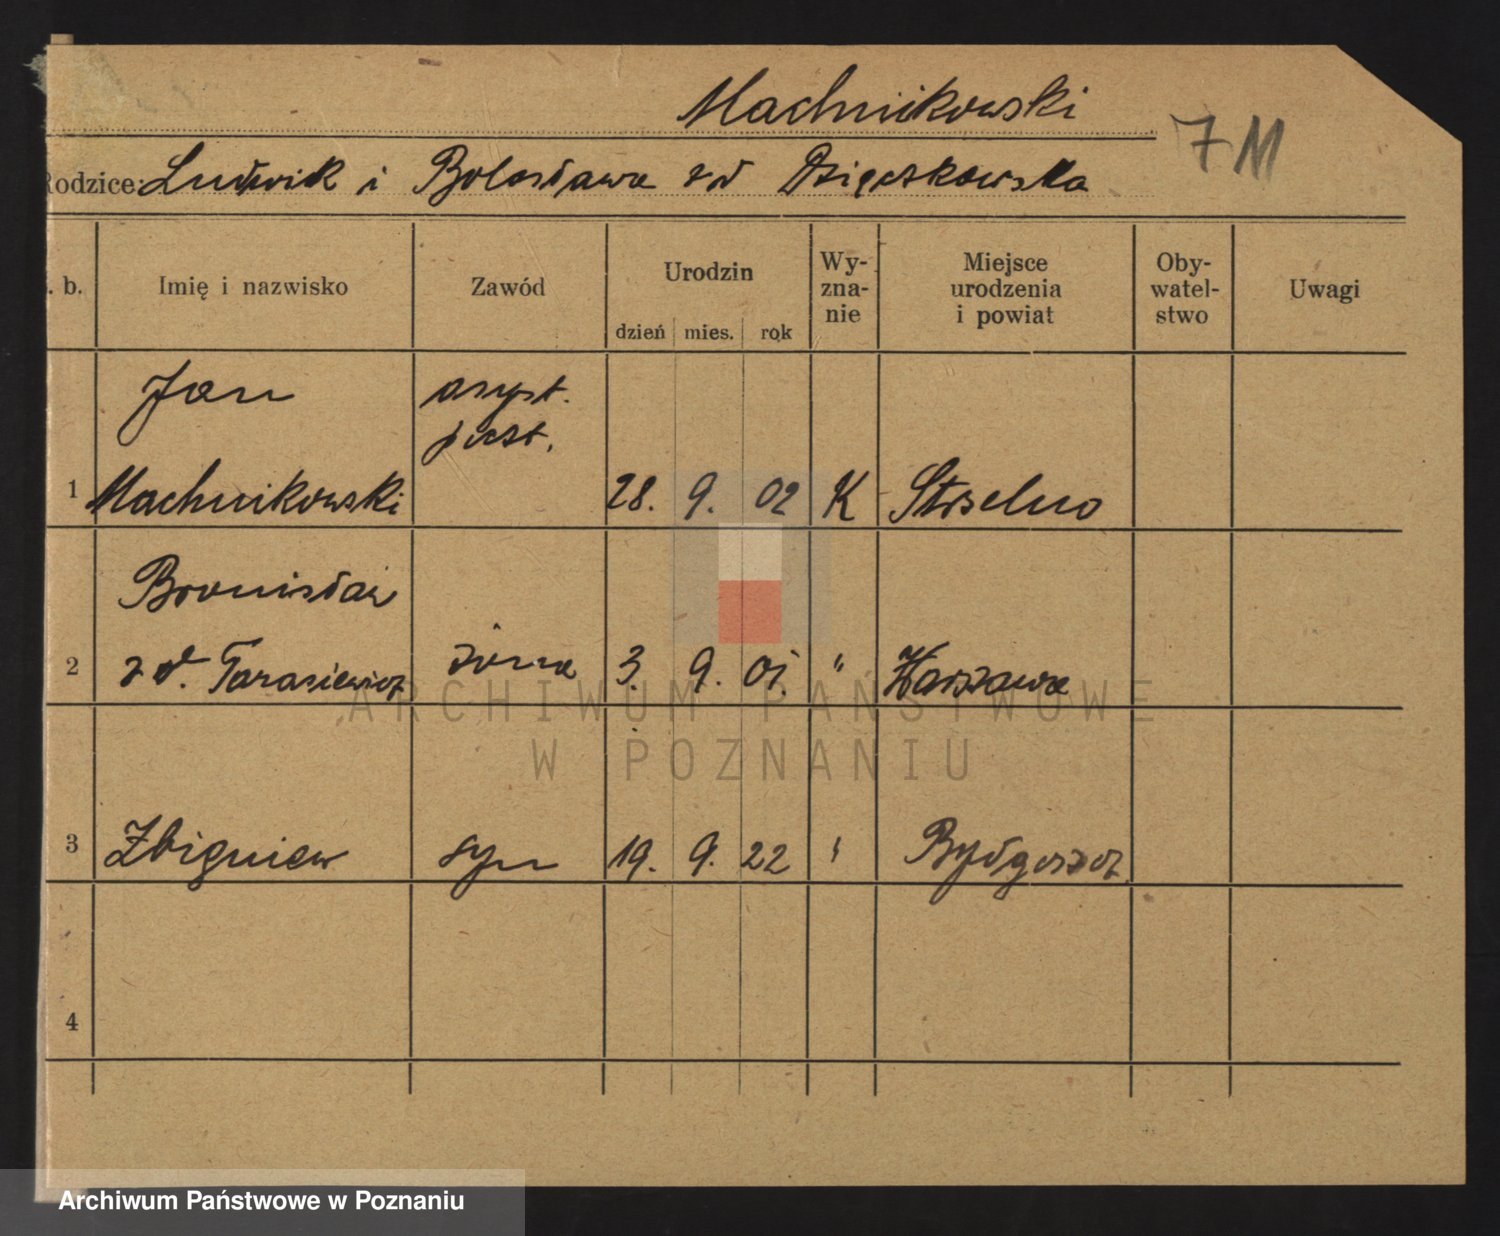 Machnikowski
7 M
Rodzice: Ludwik i Bolesława zd Dzięczkowska
. b.
Imię i nazwisko
Zawód
Urodzin
dzień mies. rok
Wy-
zna-
nie
Miejsce
urodzenia
i powiat
Oby-
watel-
stwo
Uwagi
Jan asyst.
poczt.
1 Machnikowski 28. 9. 02 K Strzelno
Bronisław
2 zd. Tarasiewicz żona 3. 9. 01. " Warszawa
3 Zbigniew syn 19. 9. 22 " Bydgoszcz
4
ARCHIWUM PAŃSTWOWE
W POZNANIU
Archiwum Państwowe w Poznaniu